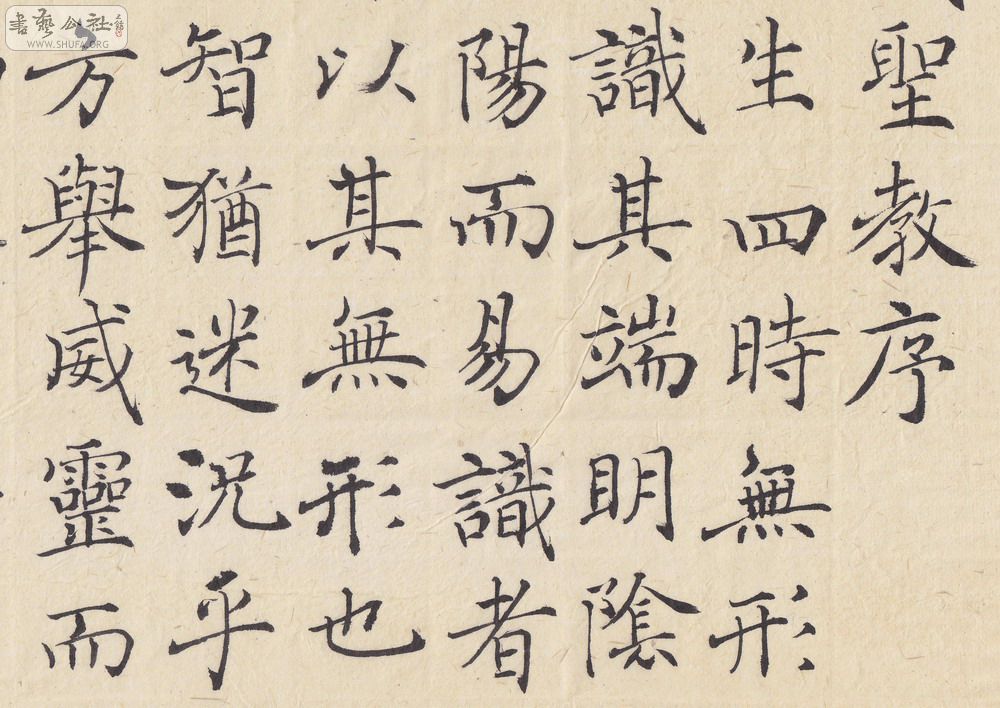 聖教序
生四時無形
識其端明陰
陽而易識者
以其無形也
智猶迷況乎
方舉威靈而
書藝公社
WWW.SHUFA.ORG